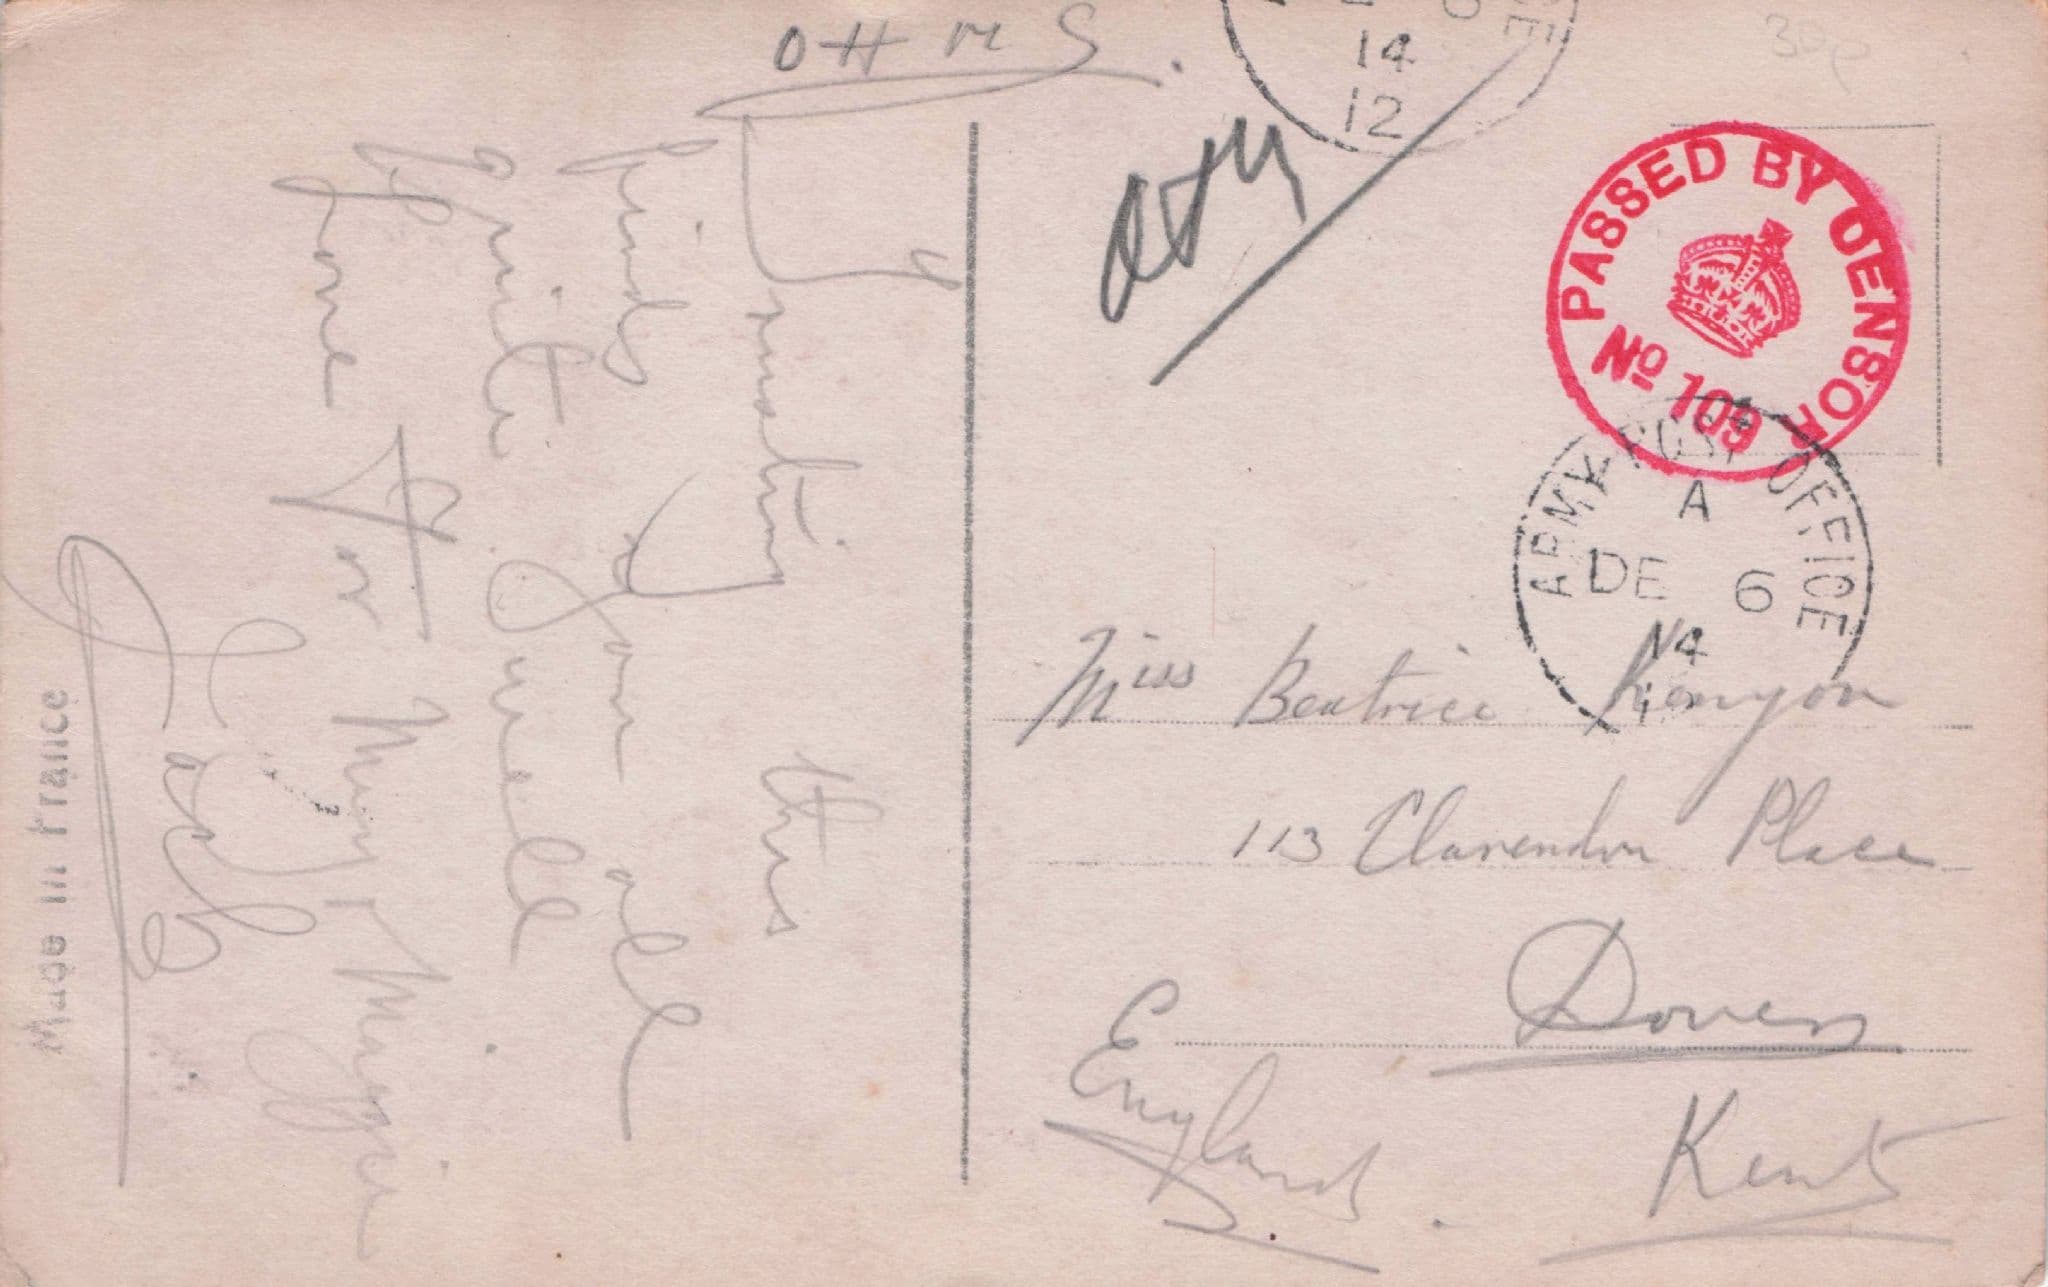 OHMS.
Trusting this
finds you all
quite well.
love for Mum, Maggie
Made in France
14
12
PASSED BY CENSOR
No 109
ARMY POST OFFICE
A
DE 6
14
12
Miss Beatrice Kenyon
113 Clarendon Place
Dover
Kent
England.